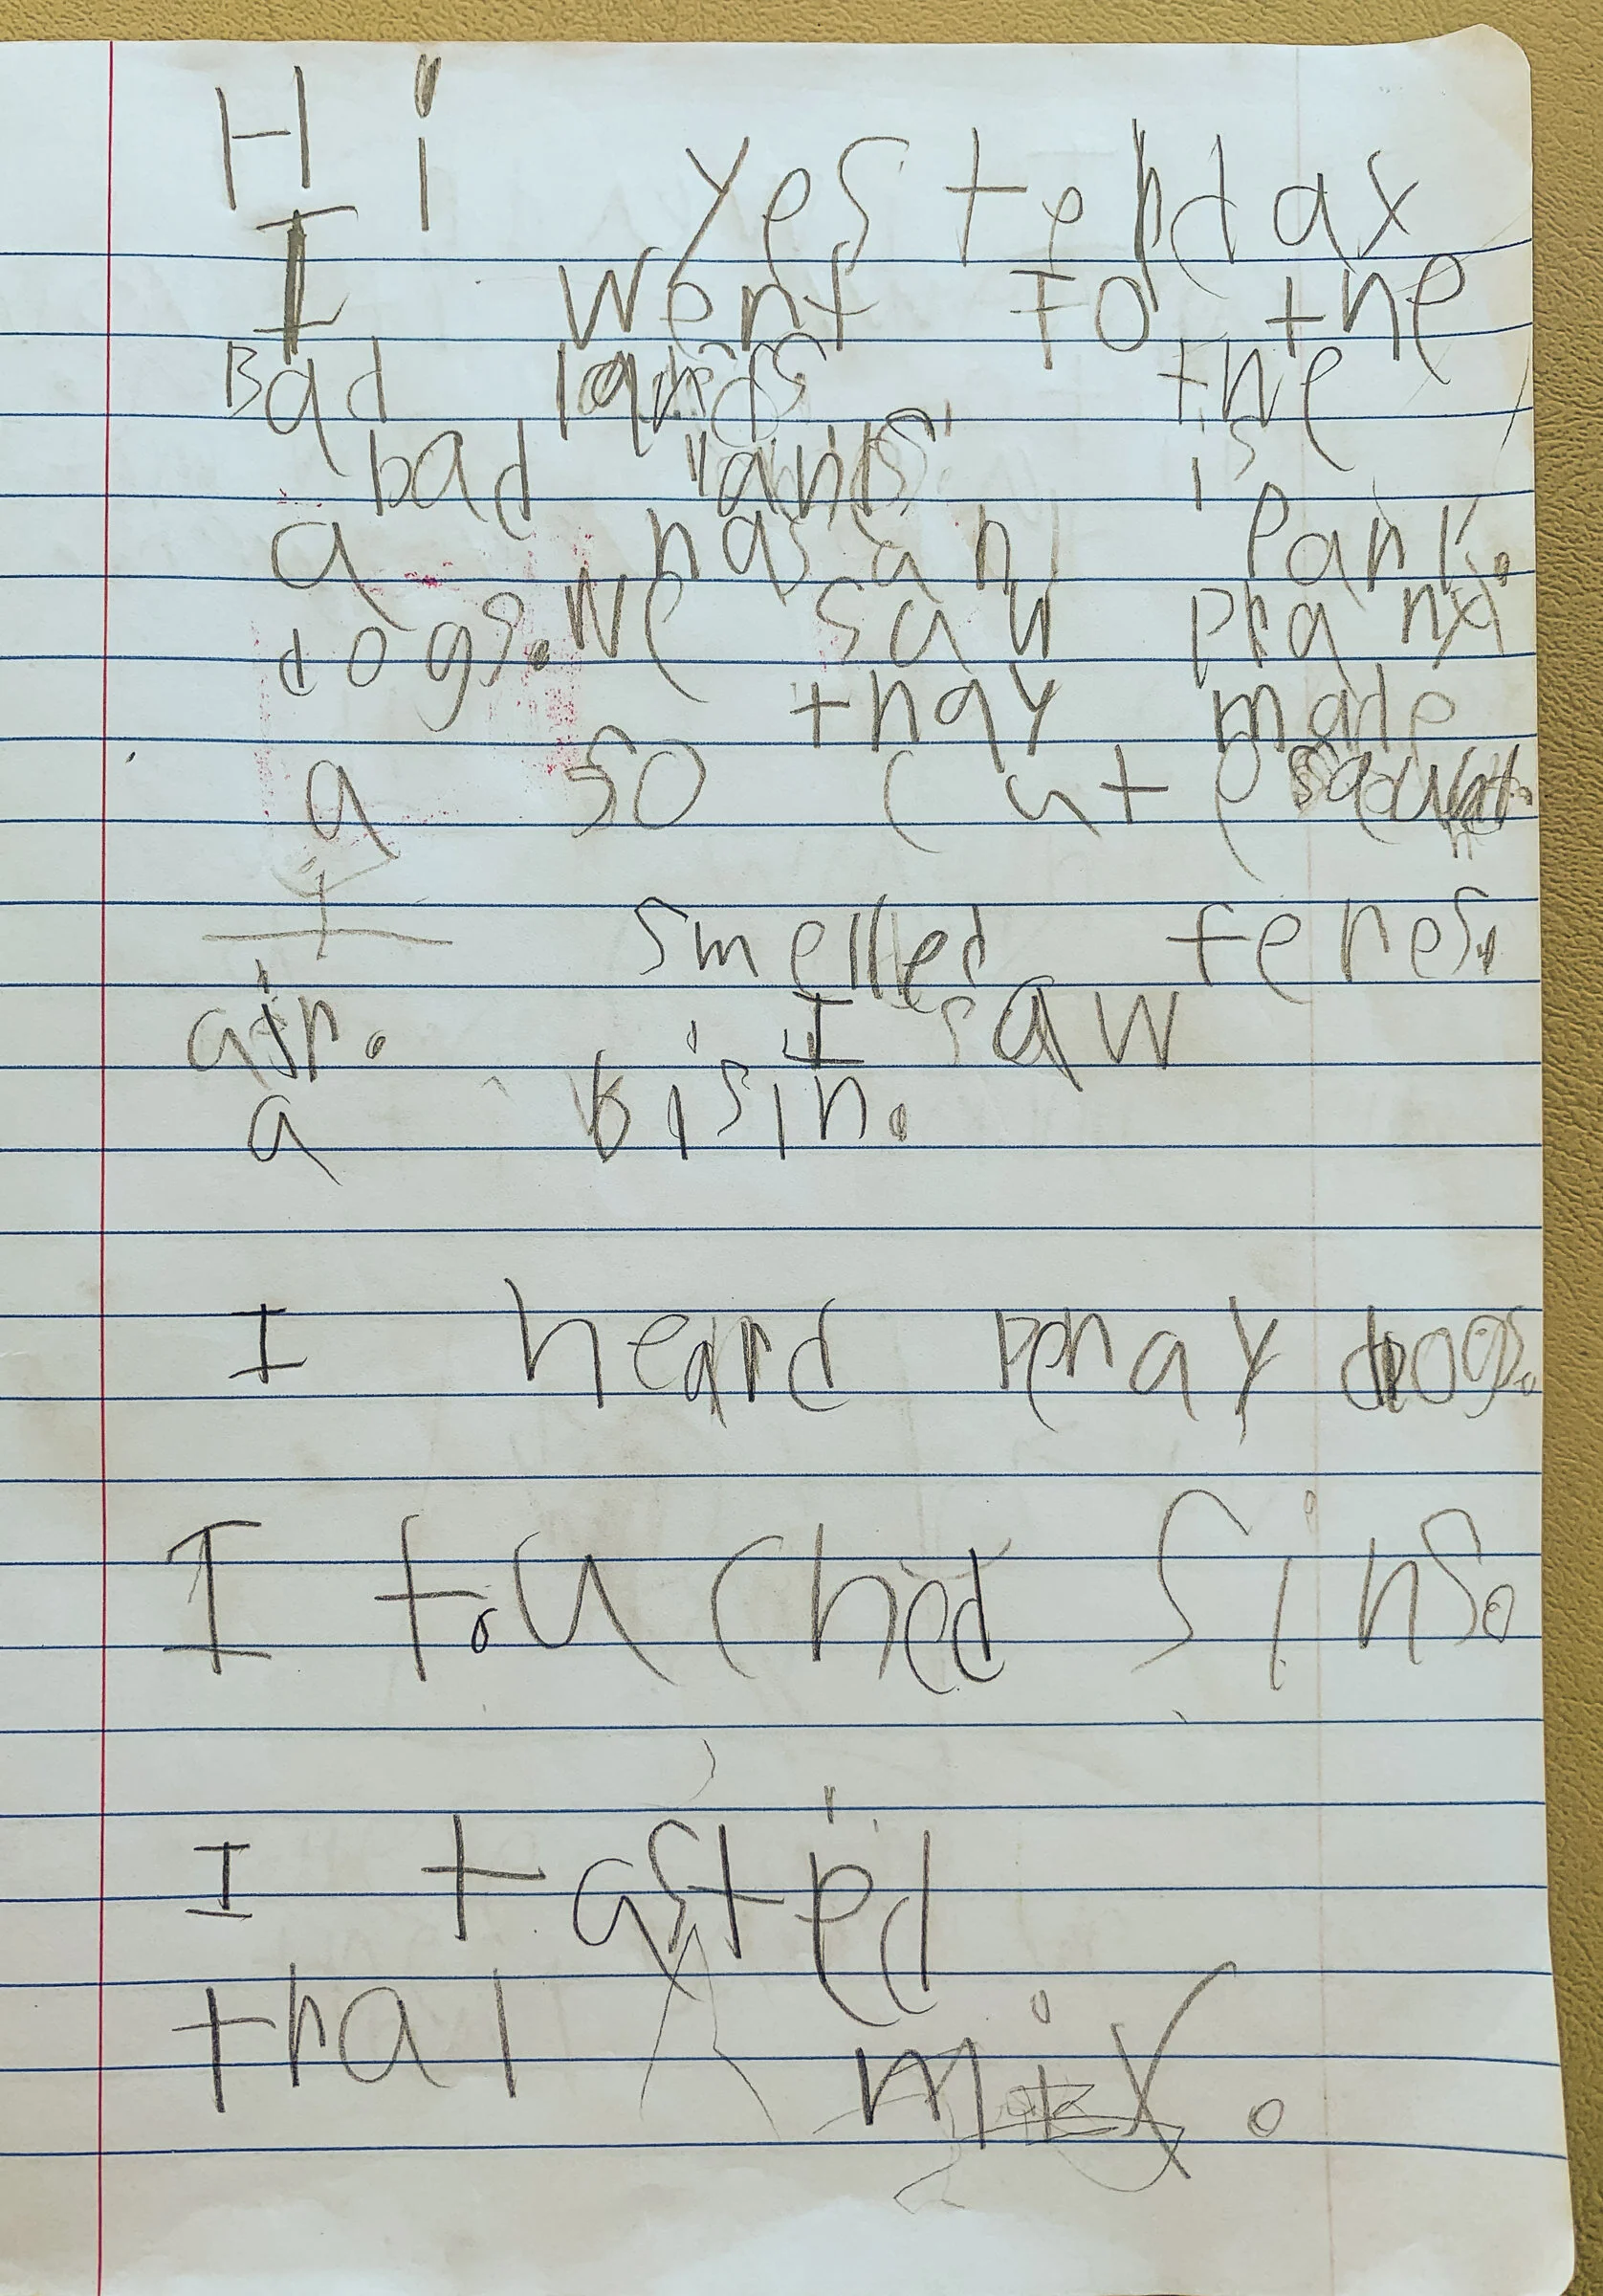 Hi yesterday
I went to the
Bad lands the
bad lands is
a nashan park.
We saw prary
dogs. thay made
a so cute sound.
I smelled fresh
air. I saw
a bisin.
I heard peray dogs.
I touched sins.
I tasted
tral mix.